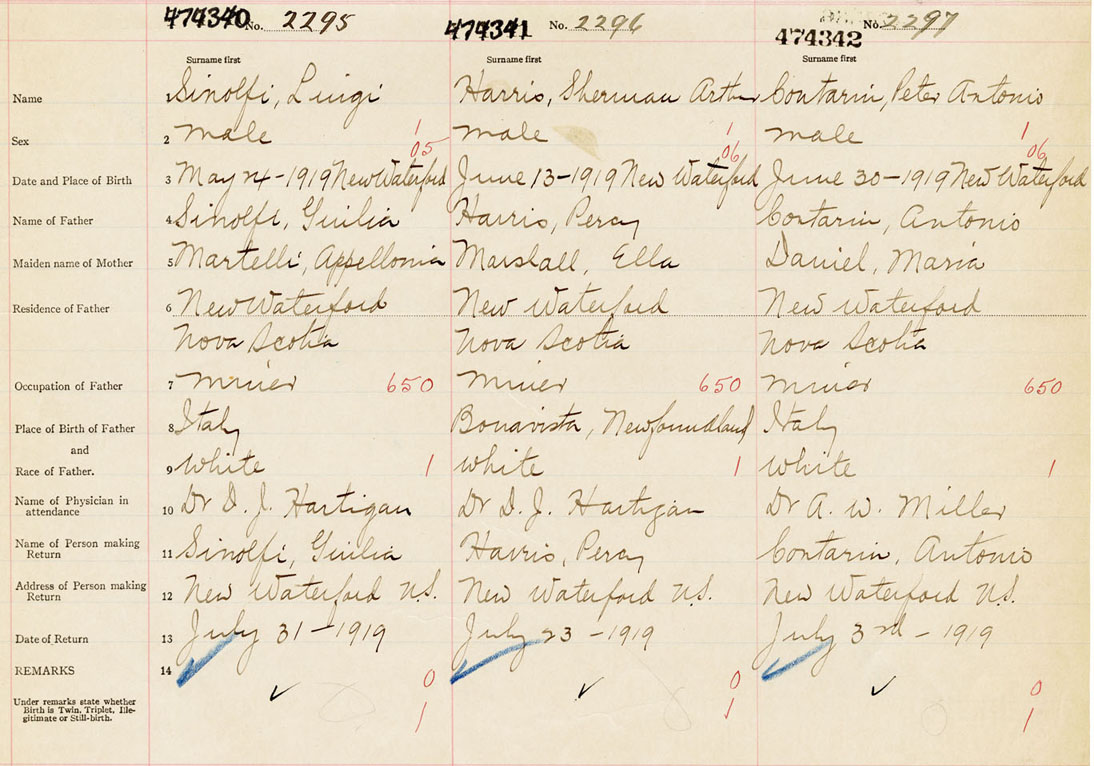 474340 No. 2295 474341 No. 2296 474342 No. 2297
Surname first Surname first Surname first
Name 1 Sinolfi, Luigi Harris, Sherman Arthur Contarin, Peter Antonio
Sex 2 male 1 male 1 male 1
05 06 06
Date and Place of Birth 3 May 4-1919 New Waterford June 13-1919 New Waterford June 30-1919 New Waterford
Name of Father 4 Sinolfi, Giulia Harris, Percy Contarin, Antonio
Maiden name of Mother 5 Martelli, Appellonia Marshall, Ella Daniel, Maria
Residence of Father 6 New Waterford New Waterford New Waterford
Nova Scotia Nova Scotia Nova Scotia
Occupation of Father 7 miner 650 miner 650 miner 650
Place of Birth of Father 8 Italy Bonavista, Newfoundland Italy
and
Race of Father. 9 white 1 white 1 white 1
Name of Physician in
attendance 10 Dr D. J. Hartigan Dr D. J. Hartigan Dr A. W. Miller
Name of Person making
Return 11 Sinolfi, Giulia Harris, Percy Contarin, Antonio
Address of Person making
Return 12 New Waterford N.S. New Waterford N.S. New Waterford N.S.
Date of Return 13 July 31-1919 July 23-1919 July 3rd-1919
REMARKS 14 0 0 0
Under remarks state whether
Birth is Twin, Triplet, Ille-
gitimate or Still-birth. 1 1 1